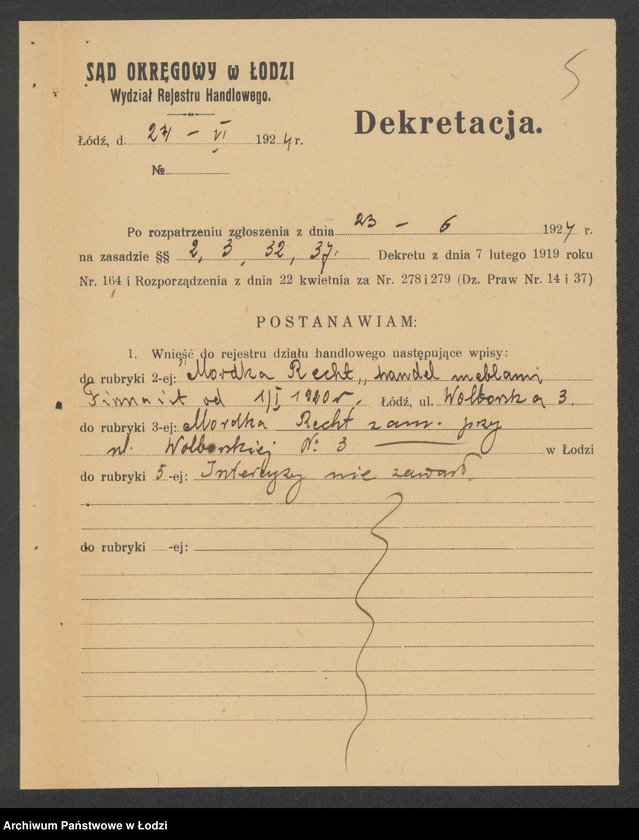 SĄD OKRĘGOWY w ŁODZI
Wydział Rejestru Handlowego.
5
Dekretacja.
Łódź, d. 24 – VI 1924 r.
№
Po rozpatrzeniu zgłoszenia z dnia 23 – 6 1924 r.
na zasadzie §§ 2, 3, 32, 37. Dekretu z dnia 7 lutego 1919 roku
Nr. 164 i Rozporządzenia z dnia 22 kwietnia za Nr. 278 i 279 (Dz. Praw Nr. 14 i 37)
POSTANAWIAM:
1. Wnieść do rejestru działu handlowego następujące wpisy:
do rubryki 2-ej: "Mordka Recht" handel meblami
Firma ist. od 1/I 1920 r. Łódź, ul. Wolborska 3.
do rubryki 3-ej: Mordka Recht zam. przy
ul. Wolborskiej № 3 w Łodzi
do rubryki 5-ej: Intercyzy nie zawarł.
do rubryki -ej:
Archiwum Państwowe w Łodzi